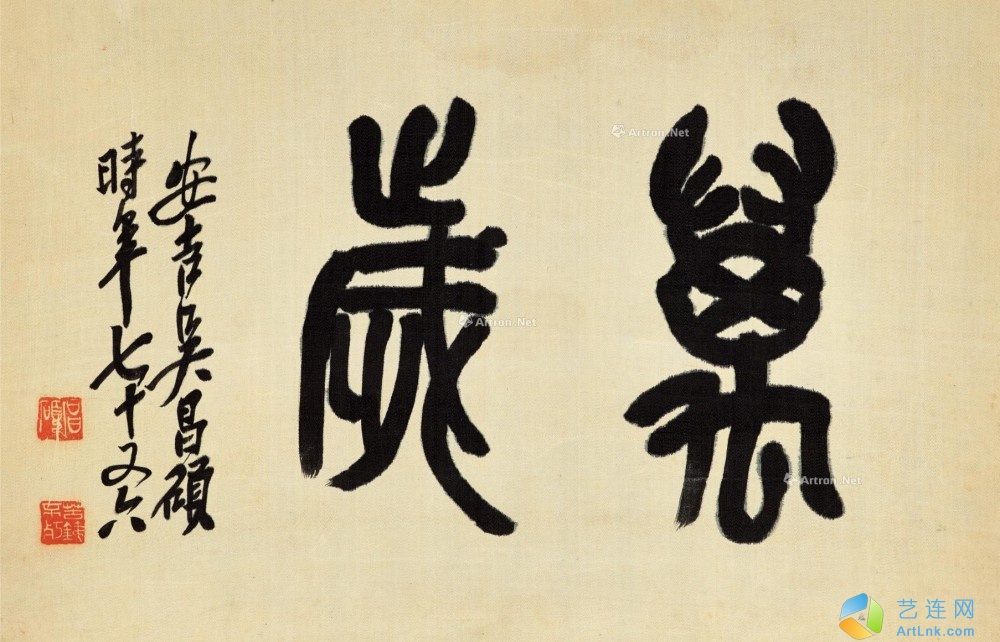 萬歲
安吉吳昌碩
時年七十又六
Artron.Net
Artron.Net
Artron.Net
艺连网
ArtLnk.com